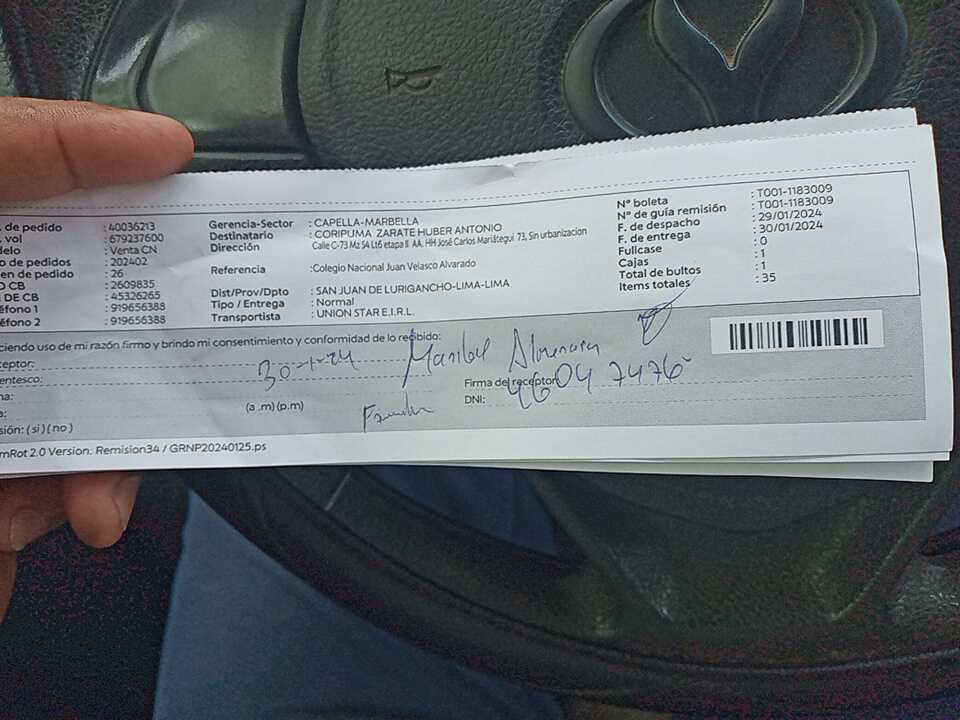 . de pedido : 40036213
. vol : 679237600
delo : Venta CN
o de pedidos : 202402
en de pedido : 26
O CB : 2609835
I DE CB : 45326265
éfono 1 : 919656388
éfono 2 : 919656388
Gerencia-Sector : CAPELLA-MARBELLA
Destinatario : CORIPUMA ZARATE HUBER ANTONIO
Dirección : Calle C-73 Mz 54 Lt6 etapa II AA. HH José Carlos Mariátegui 73, Sin urbanizacion
Referencia : Colegio Nacional Juan Velasco Alvarado
Dist/Prov/Dpto : SAN JUAN DE LURIGANCHO-LIMA-LIMA
Tipo / Entrega : Normal
Transportista : UNION STAR E.I.R.L.
N° boleta : T001-1183009
N° de guía remisión : T001-1183009
F. de despacho : 29/01/2024
F. de entrega : 30/01/2024
Fullcase : 0
Cajas : 1
Total de bultos : 1
Items totales : 35
ciendo uso de mi razón firmo y brindo mi consentimiento y conformidad de lo recibido:
ceptor: 30-1-24 Maribel
entesco: Firma del receptor:
na: DNI: 46047476
a: (a .m) (p.m)
sión: ( si ) ( no )
mRot 2.0 Version: Remision34 / GRNP20240125.ps